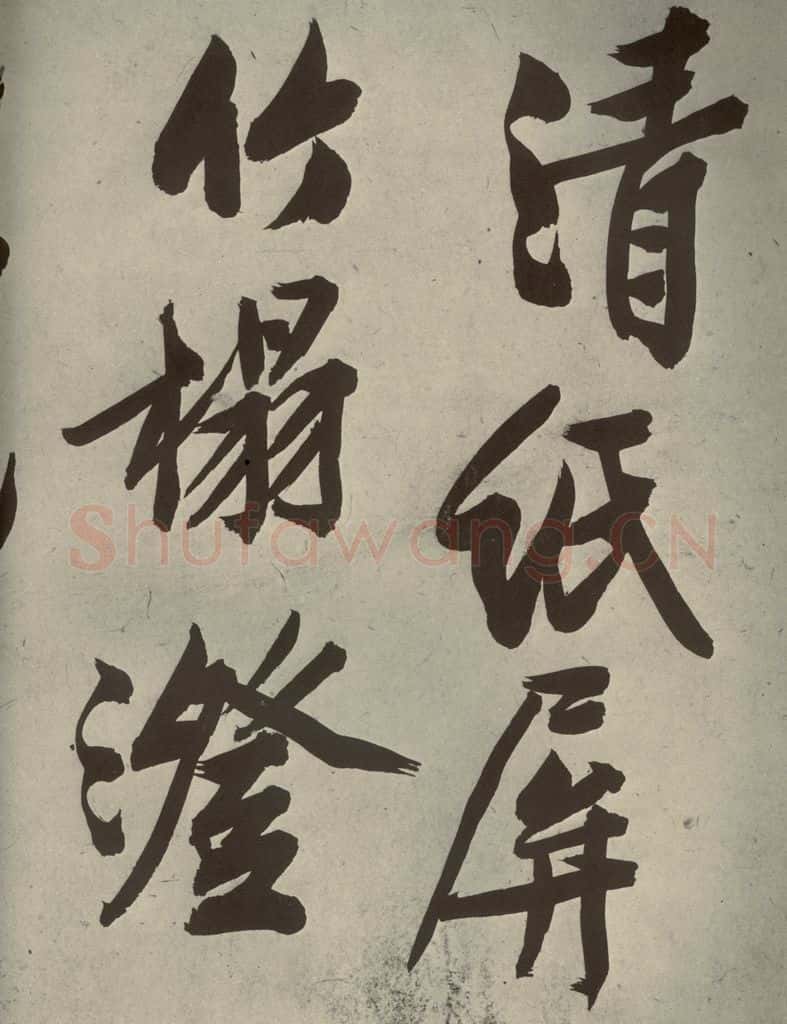 清纸屏
竹榻澄
Shufawang.CN